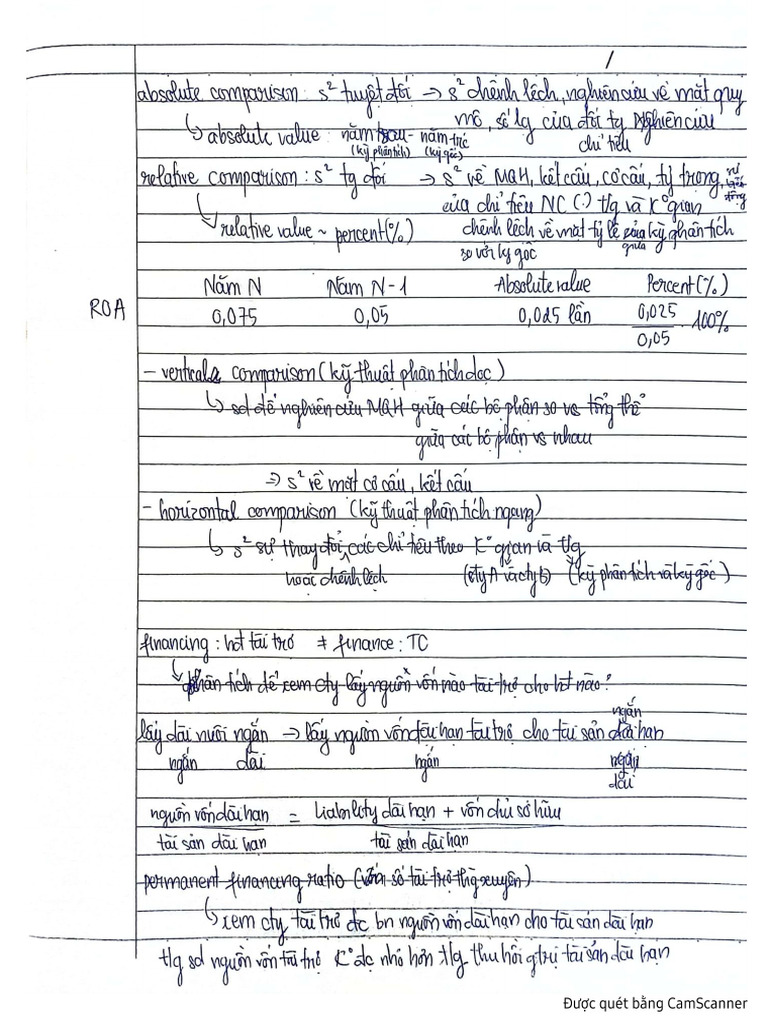 absolute comparison: s² tuyệt đối → s² chênh lệch, nghiên cứu về mặt quy
mô, số lg của đối tg nghiên cứu
↳ absolute value: năm sau - năm trc chỉ tiêu
(kỳ phân tích) (kỳ gốc)
relative comparison: s² tg đối → s² về MQH, kết cấu, cơ cấu, tỷ trọng,
của chỉ tiêu NC (.) t/g và K° gian
↳ relative value ~ percent(%) chênh lệch về mặt tỷ lệ giữa kỳ phân tích
so với kỳ gốc
Năm N Năm N-1 Absolute value Percent(%)
ROA 0,075 0,05 0,025 lần 0,025/0,05 . 100%
- vertical comparison (kỹ thuật phân tích dọc)
↳ sd để nghiên cứu MQH giữa các bộ phận so vs tổng thể
giữa các bộ phận vs nhau
⇒ s² về mặt cơ cấu, kết cấu
- horizontal comparison (kỹ thuật phân tích ngang)
↳ s² sự thay đổi các chỉ tiêu theo K° gian và t/g
hoặc chênh lệch (cty A và cty B) (kỳ phân tích và kỳ gốc)
financing: hđt tài trợ ≠ finance: TC
↳ phân tích để xem cty lấy nguồn vốn nào tài trợ cho hđt nào?
ngắn
lấy dài nuôi ngắn → lấy nguồn vốn dài hạn tài trợ cho tài sản dài hạn
ngắn dài ngắn ngắn
dài
nguồn vốn dài hạn = Liability dài hạn + vốn chủ sở hữu
tài sản dài hạn tài sản dài hạn
permanent financing ratio ( số tài trợ thg xuyên)
↳ xem cty tài trợ đc bn nguồn vốn dài hạn cho tài sản dài hạn
t/g sd nguồn vốn tài trợ K° đc nhỏ hơn t/g thu hồi gtrị tài sản dài hạn
Được quét bằng CamScanner